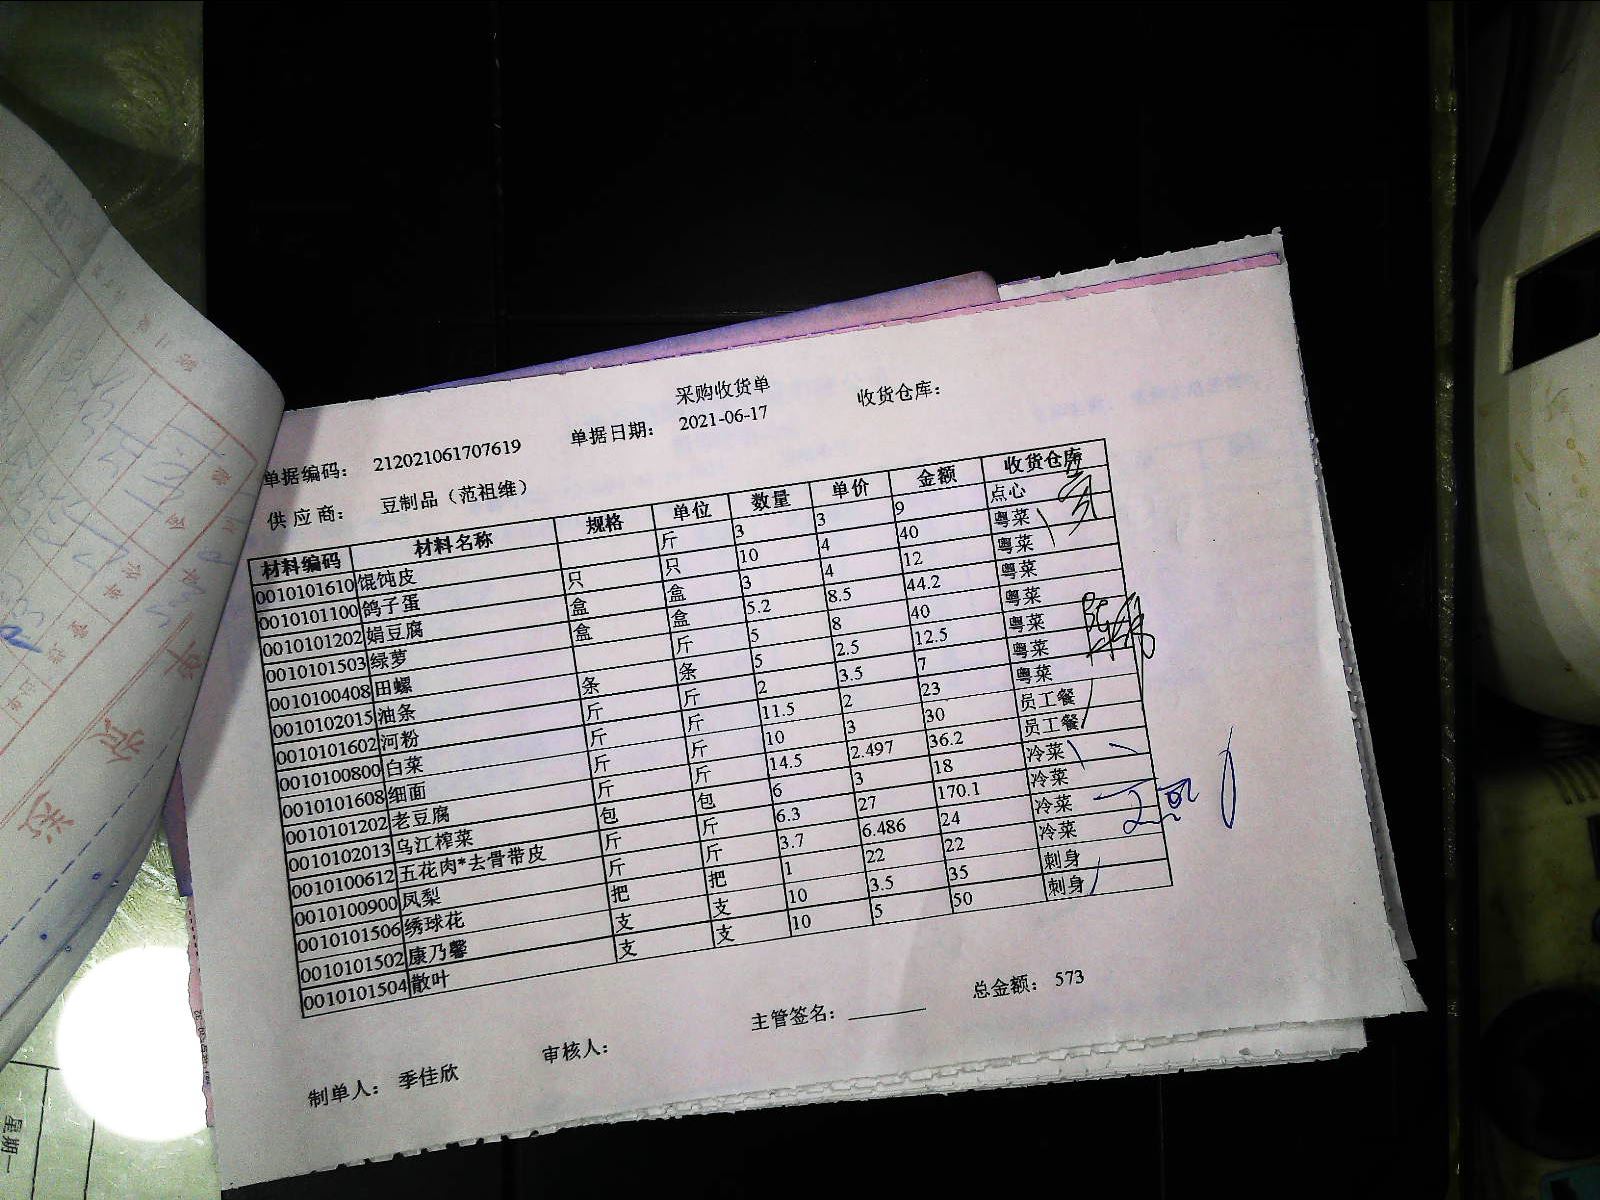 采购收货单
单据编码： 212021061707619 单据日期： 2021-06-17 收货仓库：
供 应 商： 豆制品（范祖维）
材料编码 材料名称 规格 单位 数量 单价 金额 收货仓库
0010101610 馄饨皮 斤 3 3 9 点心
0010101100 鸽子蛋 只 只 10 4 40 粤菜
0010101202 娟豆腐 盒 盒 3 4 12 粤菜
0010101503 绿萝 盒 盒 5.2 8.5 44.2 粤菜
0010100408 田螺 斤 5 8 40 粤菜
0010102015 油条 条 条 5 2.5 12.5 粤菜
0010101602 河粉 斤 斤 2 3.5 7 粤菜
0010100800 白菜 斤 斤 11.5 2 23 粤菜
0010101608 细面 斤 斤 10 3 30 员工餐
0010101202 老豆腐 斤 斤 14.5 2.497 36.2 员工餐
0010102013 乌江榨菜 包 包 6 3 18 冷菜
0010100612 五花肉*去骨带皮 斤 斤 6.3 27 170.1 冷菜
0010100900 凤梨 斤 斤 3.7 6.486 24 冷菜
0010101506 绣球花 把 把 1 22 22 冷菜
0010101502 康乃馨 支 支 10 3.5 35 刺身
0010101504 散叶 支 支 10 5 50 刺身
主管签名： 总金额： 573
制单人： 季佳欣 审核人：
星期一